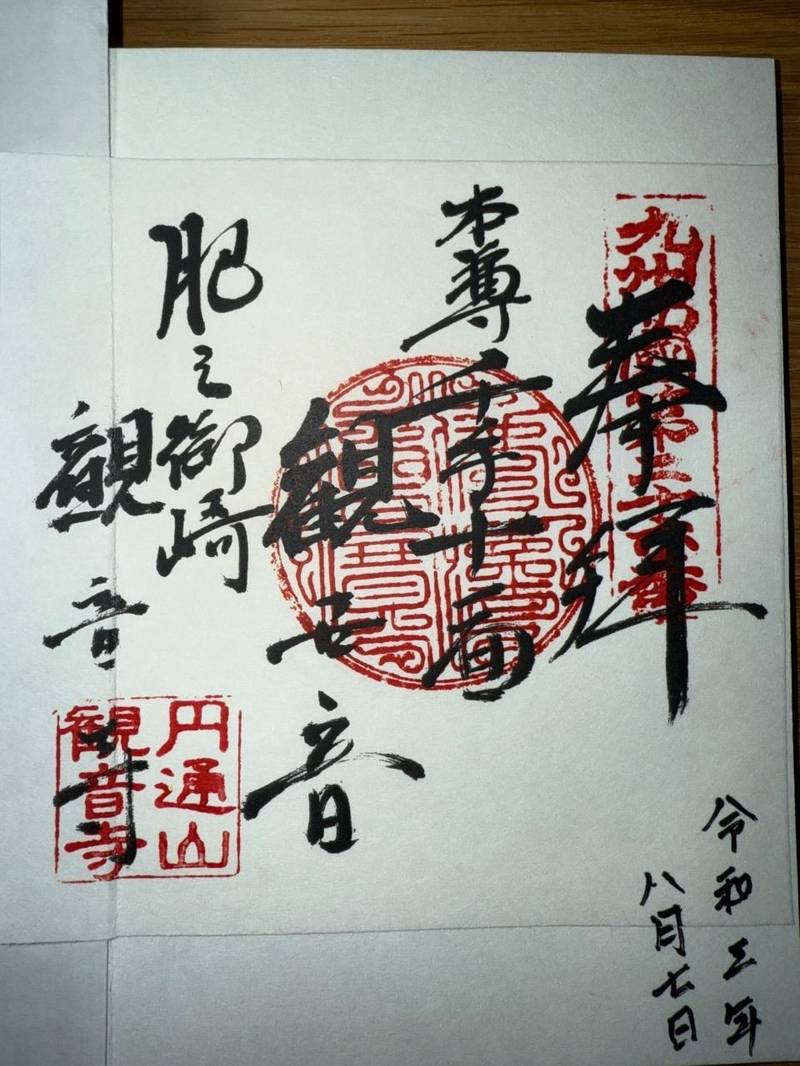 九州西國第二十六番
奉拝
令和三年
八月七日
本尊千手十一面
観世音
肥之御崎
観音寺
円通山
観音寺